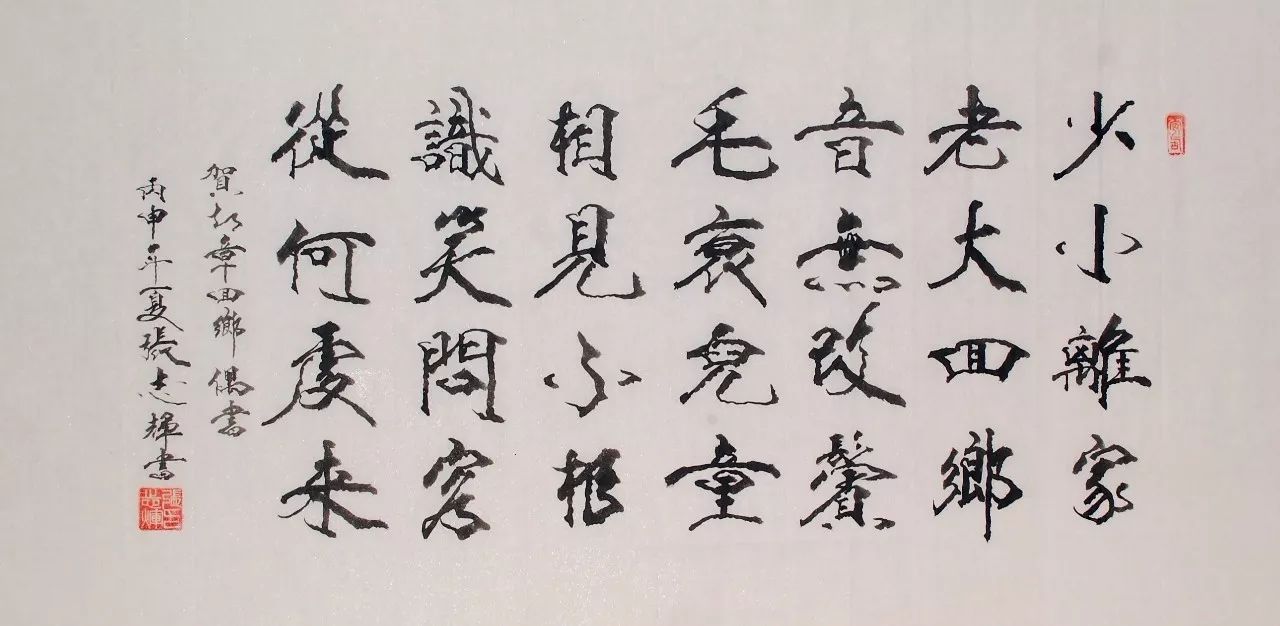 少小離家
老大回鄉
音無改鬢
毛衰兒童
相見不相
識笑問客
從何處來
賀知章回鄉偶書
丙申年夏張志輝書